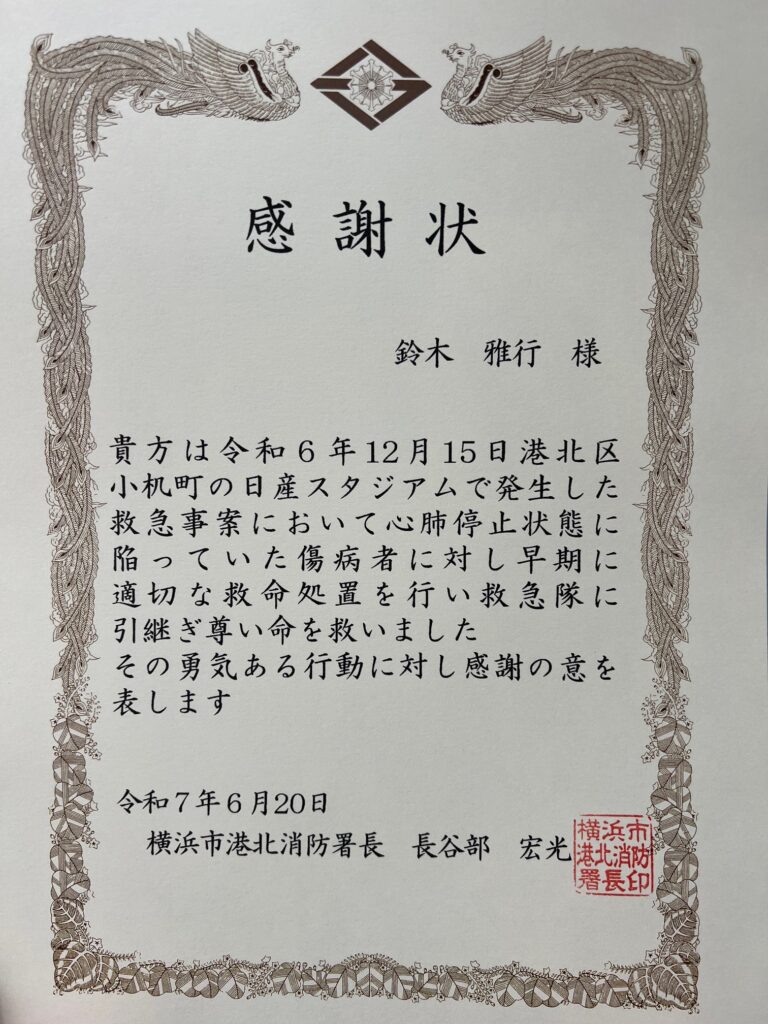 感謝状
鈴木 雅行 様
貴方は令和6年12月15日港北区
小机町の日産スタジアムで発生した
救急事案において心肺停止状態に
陥っていた傷病者に対し早期に
適切な救命処置を行い救急隊に
引継ぎ尊い命を救いました
その勇気ある行動に対し感謝の意を
表します
令和7年6月20日
横浜市港北消防署長 長谷部 宏光
横浜市
港北消防
署長印